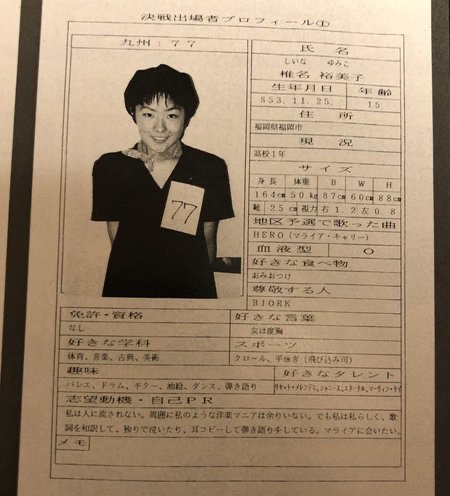 決戦出場者プロフィール①
九州：77
氏名
しいな ゆみこ
椎名 裕美子
生年月日 年齢
S53.11.25. 15
住所
福岡県福岡市
現況
高校1年
サイズ
身長 体重 B W H
164cm 50kg 87cm 60cm 88cm
靴 25cm 視力 右1.2 左0.8
地区予選で歌った曲
HERO（マライア・キャリー）
血液型 O
好きな食べ物
おみおつけ
尊敬する人
BJORK
77
免許・資格 好きな言葉
なし 女は度胸
好きな学科 スポーツ
体育、音楽、古典、美術 クロール、平泳ぎ（飛び込み可）
趣味 好きなタレント
バレエ、ドラム、ギター、油絵、ダンス、弾き語り
志望動機・自己PR
私は人に流されない。周囲に私のような洋楽マニアは余りいない。でも私は私らしく、歌
詞を和訳して、独りで泣いたり、耳コピーして弾き語りをしている。マライアに会いたい。
メモ